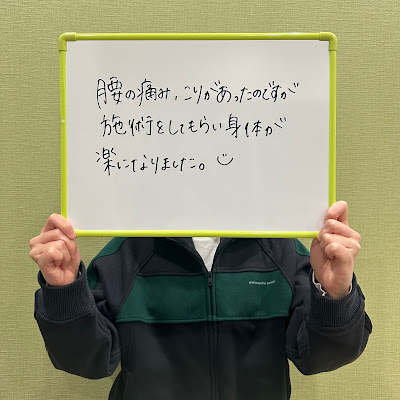 腰の痛み、こりがあったのですが
施術をしてもらい身体が
楽になりました。☺